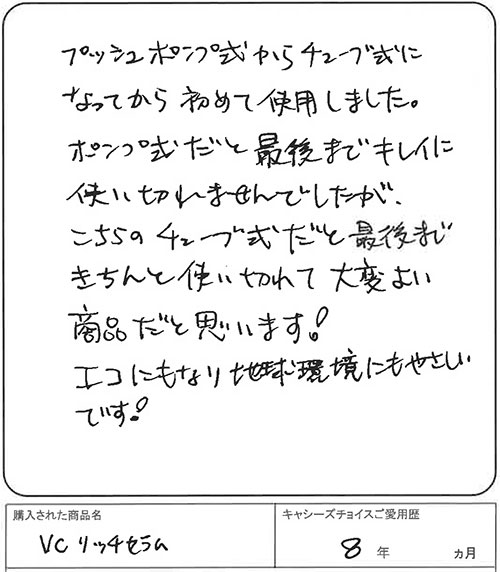 プッシュポンプ式からチューブ式に
なってから初めて使用しました。
ポンプ式だと最後までキレイに
使い切れませんでしたが、
こちらのチューブ式だと最後まで
きちんと使い切れて大変よい
商品だと思います!
エコにもなり地球環境にもやさしい
です!
購入された商品名
キャシーズチョイスご愛用歴
VCリッチセラム
8年 ヵ月